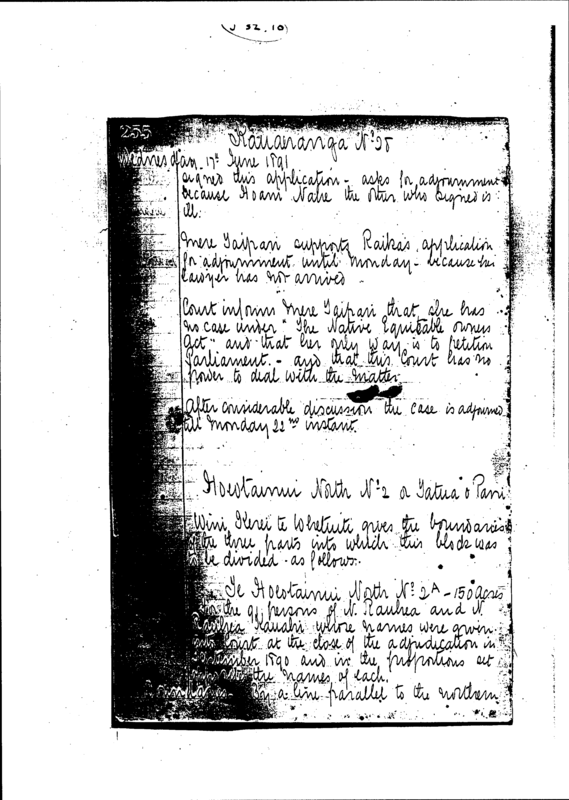 J 52.10
255
Kauaeranga No 25
Wednesday 17th June 1891
signed this application - asks for adjournment
because Hoani Nahe the other who signed is
ill.
Mere Taipari supports Raika's application
for adjournment until Monday - because her
lawyer has not arrived -
Court informs Mere Taipari that she has
no case under "The Native Equitable owners
Act" and that her only way is to petition
Parliament. - and that this Court has no
power to deal with the matter.
After considerable discussion the case is adjourned
till Monday 22nd instant.
Hoeotainui North No 2 or Tatua o Pani
Wini Kerei te Whetuiti gives the boundaries
of the three parts into which this block was
to be divided - as follows.
Te Hoeotainui North No 2A - 150 acres
for the 91 persons of N. Raukea and N
whose names were given
Court at the close of the adjudication in
September 1890 and in the proportions set
the names of each.
by a line parallel to the northern